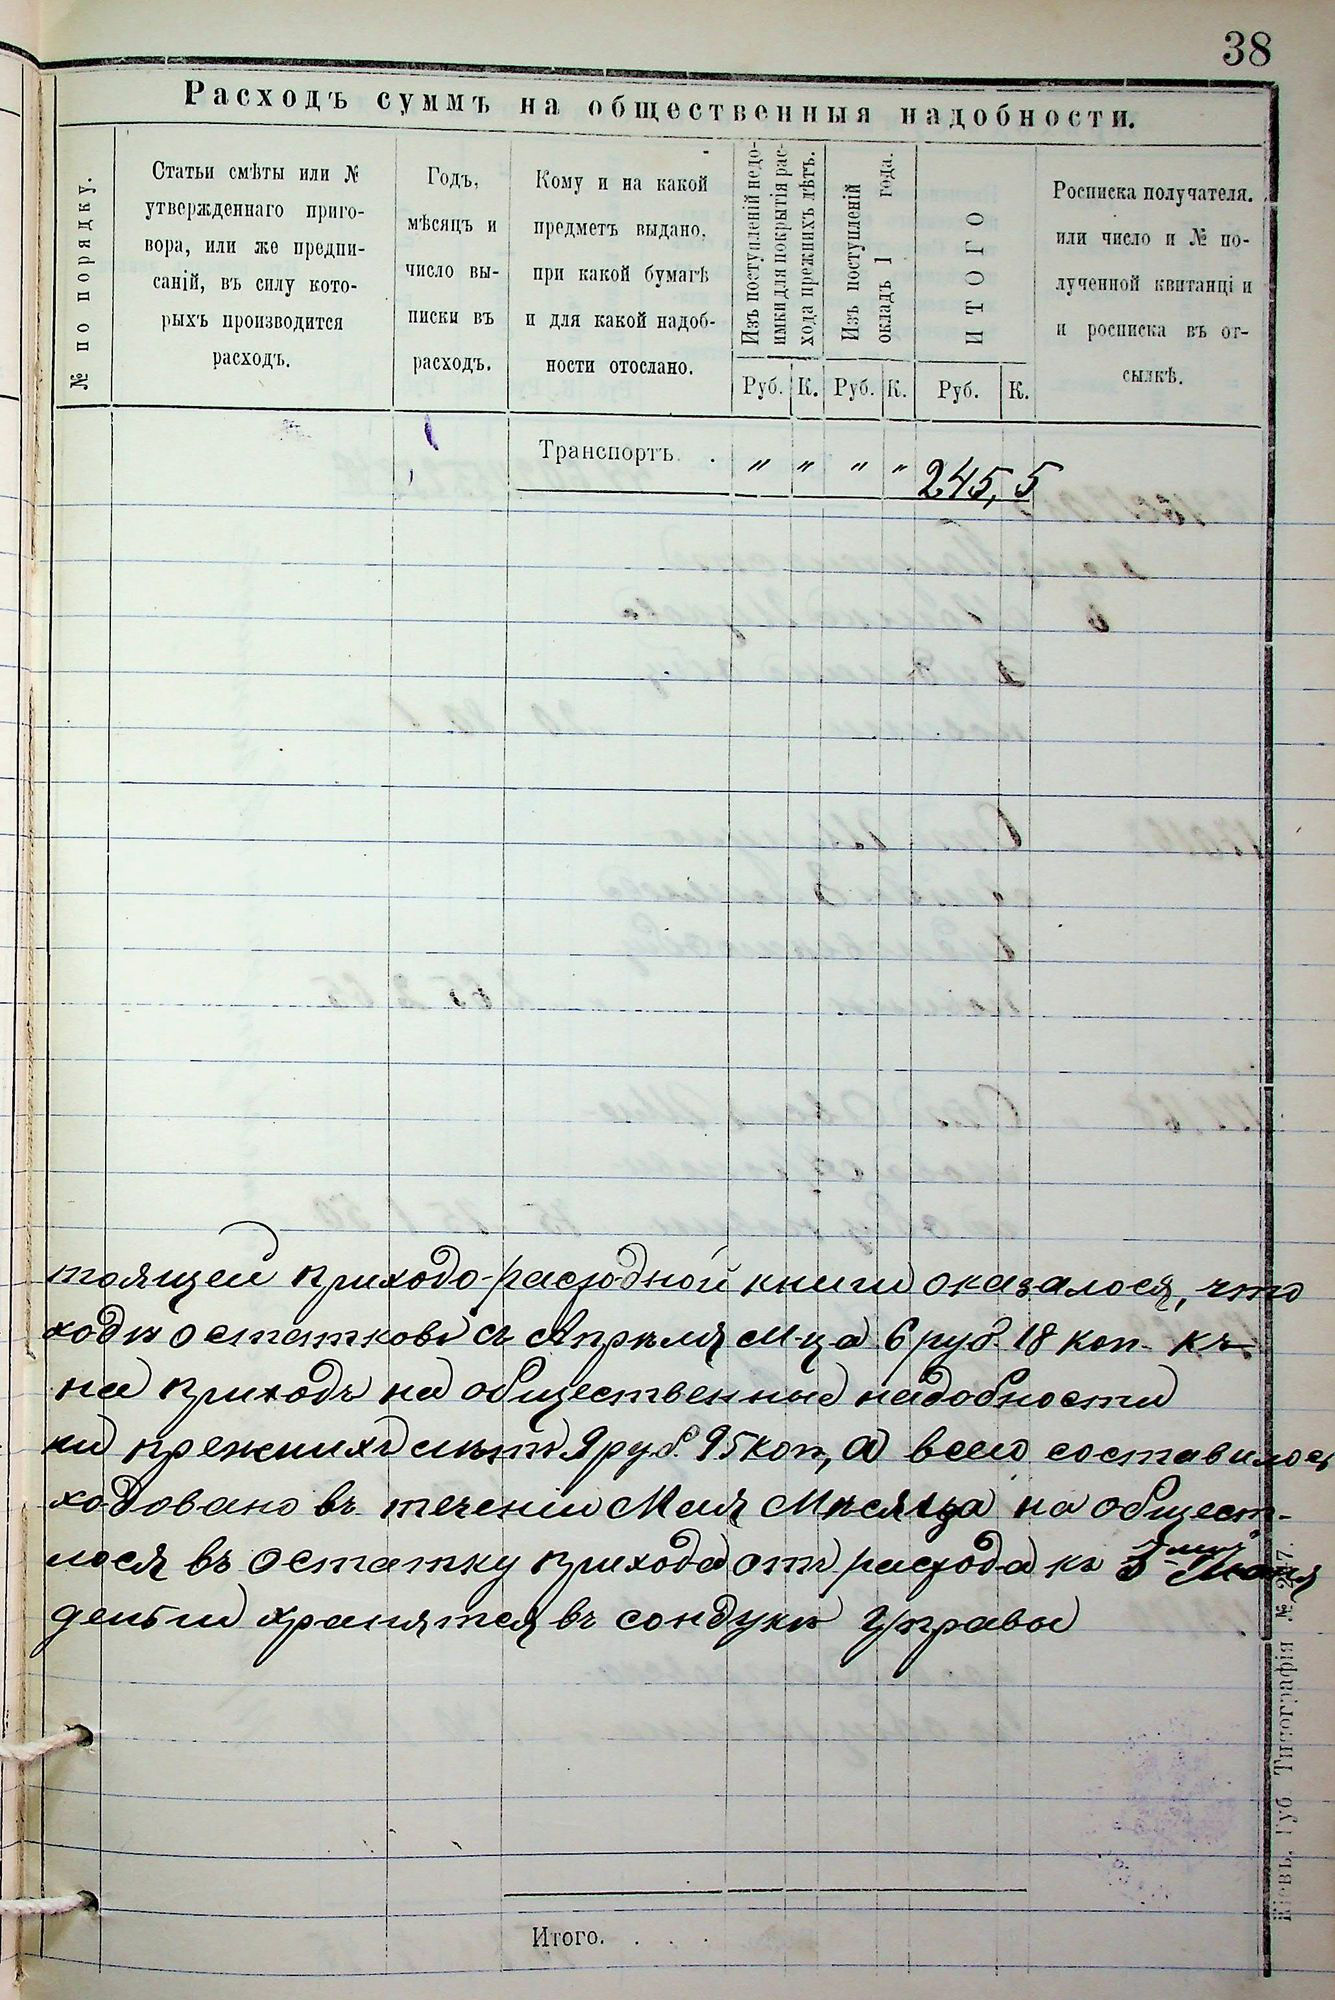 38
Расходъ суммъ на общественныя надобности.
№ по порядку.
Статьи смѣты или №
утвержденнаго приго-
вора, или же предпи-
саній, въ силу кото-
рыхъ производится
расходъ.
Годъ,
мѣсяцъ и
число вы-
писки въ
расходъ.
Кому и на какой
предметъ выдано,
при какой бумагѣ
и для какой надоб-
ности отослано.
Изъ поступленій недо-
имки для покрытія рас-
хода прежнихъ лѣтъ.
Изъ поступленій
окладъ 1 года.
ИТОГО
Росписка получателя.
или число и № по-
лученной квитанці и
и росписка въ от-
сылкѣ.
Руб. К. Руб. К. Руб. К.
Транспортъ. . „ „ „ „ 245, 5
тоящей приходо-расходной книги оказалося, что
ходъ остатковъ съ Апрѣля М-ца 6 руб. 18 коп. къ
на приходъ на общественные надобности
ки прежнихъ лѣтъ 9 руб. 95 коп, а всего составилось
ходовано въ теченіи Мая Мѣсяца на общест-
лося въ остатку прихода отъ расхода къ Іюня
деньги хранятся въ сондукѣ Управы
Итого. . . .
Кіевъ, Губ. Типографія № 247.